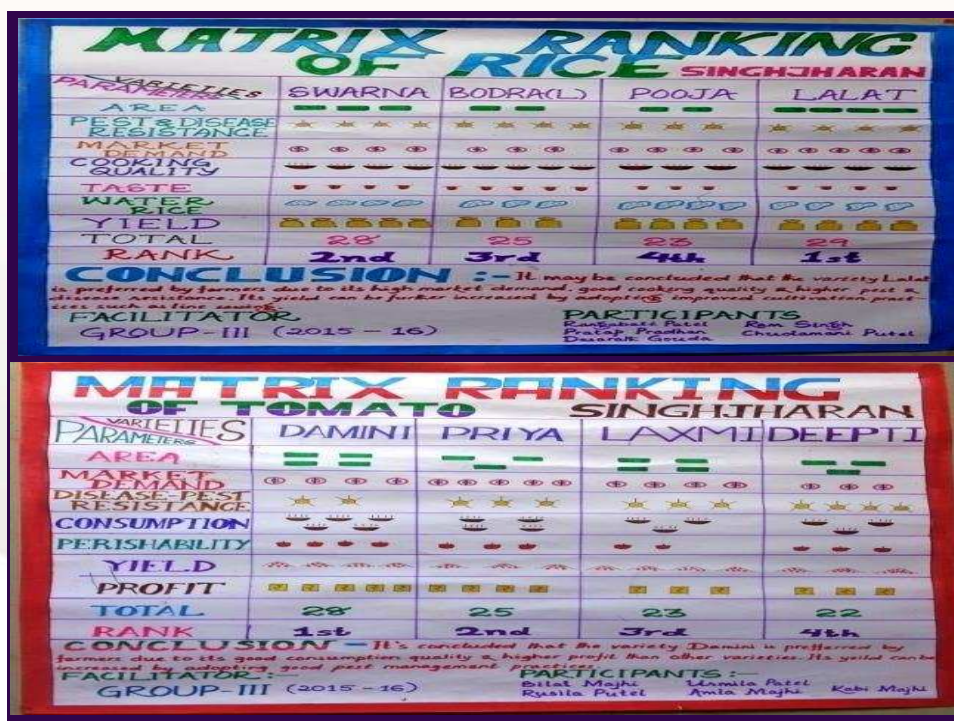 MATRIX RANKING
OF RICE SINGHJHARAN
VARIETIES
PARAMETERS
SWARNA BODRA(L) POOJA LALAT
AREA
PEST & DISEASE
RESISTANCE
MARKET
DEMAND
COOKING
QUALITY
TASTE
WATER
RICE
YIELD
TOTAL 28 25 23 29
RANK 2nd 3rd 4th 1st
CONCLUSION :- It may be concluded that the variety Lalat
is preferred by farmers due to its high market demand, good cooking quality & higher pest &
disease resistance. Its yield can be further increased by adopting improved cultivation pract-
ices such as line
FACILITATOR PARTICIPANTS
GROUP-III (2015-16)
Patel Ram Singh
Pratap Pradhan Chudamani Patel
Gouda
MATRIX RANKING
OF TOMATO SINGHJHARAN
VARIETIES
PARAMETERS
DAMINI PRIYA LAXMI DEEPTI
AREA
MARKET
DEMAND
DISEASE-PEST
RESISTANCE
CONSUMPTION
PERISHABILITY
YIELD
PROFIT
TOTAL 28 25 23 22
RANK 1st 2nd 3rd 4th
CONCLUSION - It's concluded that the variety Damini is preffered by
farmers due to its good consumption quality & higher profit than other varieties. Its yeild can be
increased by adopting good pest management practices
FACILITATOR :- PARTICIPANTS :-
GROUP-III (2015-16)
Bilat Majhi Urmila Patel
Rusila Patel Amla Majhi Kabi Majhi